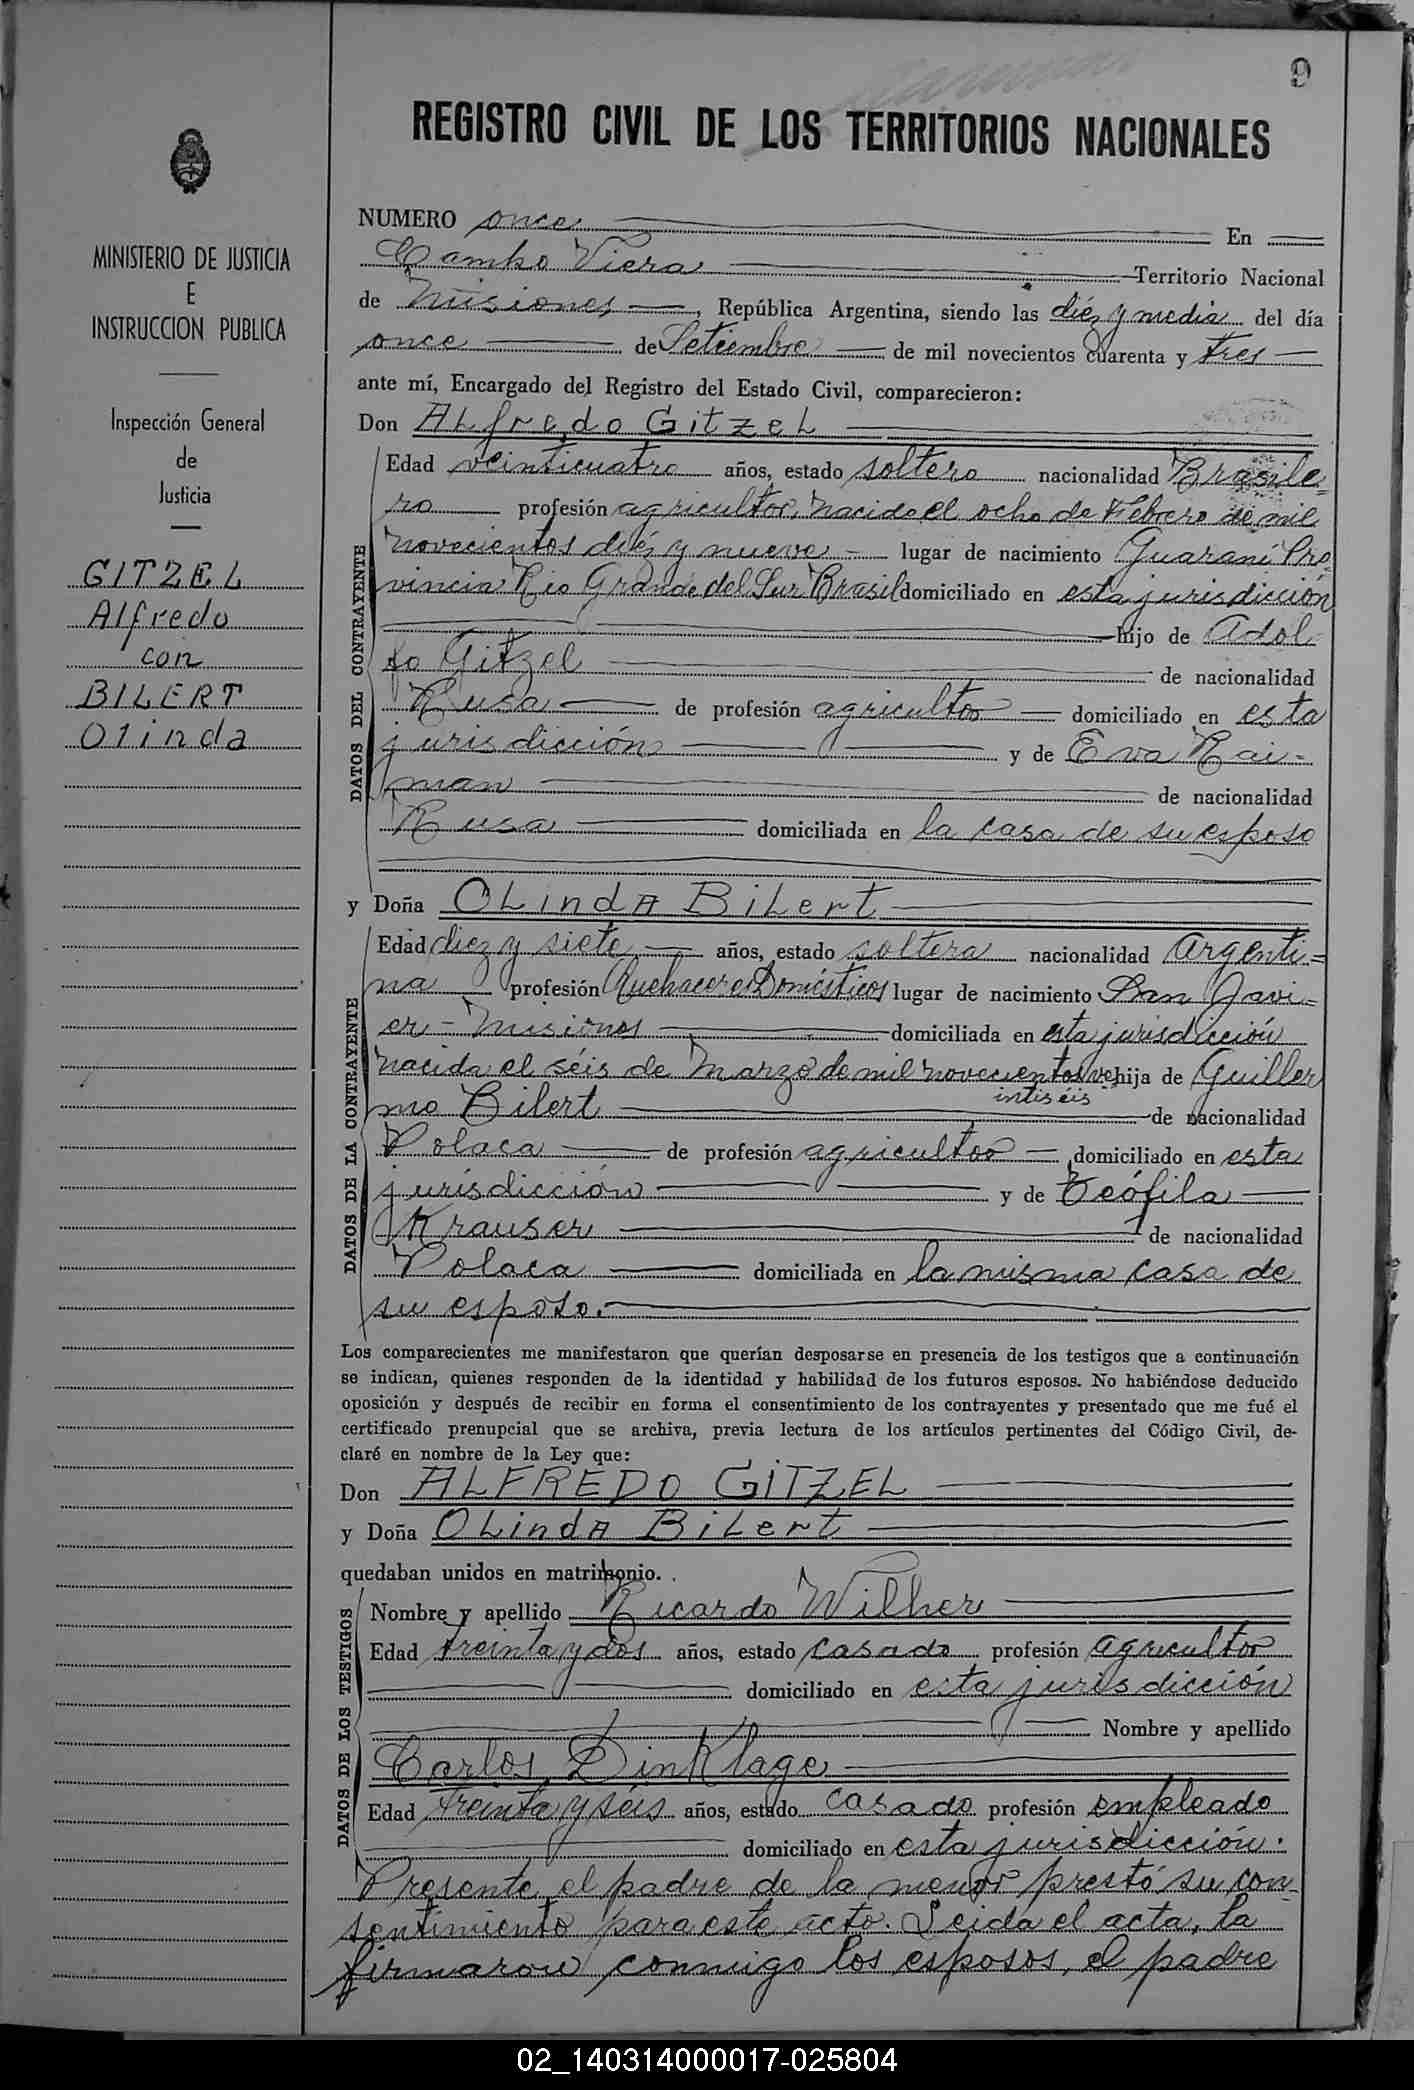 9
REGISTRO CIVIL DE LOS TERRITORIOS NACIONALES
MINISTERIO DE JUSTICIA
E
INSTRUCCION PUBLICA
Inspección General
de
Justicia
GITZEL
Alfredo
con
BILERT
Olinda
NUMERO once En
Campo Viera Territorio Nacional
de Misiones, República Argentina, siendo las diéz y media del día
once de Setiembre de mil novecientos cuarenta y tres
ante mí, Encargado del Registro del Estado Civil, comparecieron:
Don ALfredo GitzeL
DATOS DEL CONTRAYENTE
Edad veinticuatro años, estado soltero nacionalidad Brasile=
ro profesión agricultor, nacido el ocho de Febrero de mil
novecientos diéz y nueve lugar de nacimiento Guaraní Pro
vincia Rio Grande del Sur Brasil domiciliado en esta jurisdicción
hijo de Adol
fo Gitzel de nacionalidad
Rusa de profesión agricultor domiciliado en esta
jurisdicción y de Eva Rai=
man de nacionalidad
Rusa domiciliada en la casa de su esposo
y Doña OLindA BiLert
DATOS DE LA CONTRAYENTE
Edad diez y siete años, estado soltera nacionalidad Argenti=
na profesión Quehaceres Domésticos lugar de nacimiento San Javi=
er - Misiones domiciliada en esta jurisdicción
nacida el séis de Marzo de mil novecientos ve hija de Guiller
intiséis
mo Bilert de nacionalidad
Polaca de profesión agricultor domiciliado en esta
jurisdicción y de Teófila
Krauser de nacionalidad
Polaca domiciliada en la misma casa de
su esposo.
Los comparecientes me manifestaron que querían desposarse en presencia de los testigos que a continuación
se indican, quienes responden de la identidad y habilidad de los futuros esposos. No habiéndose deducido
oposición y después de recibir en forma el consentimiento de los contrayentes y presentado que me fué el
certificado prenupcial que se archiva, previa lectura de los artículos pertinentes del Código Civil, de-
claré en nombre de la Ley que:
Don ALFREDO GITZEL
y Doña OLindA BiLert
quedaban unidos en matrimonio.
DATOS DE LOS TESTIGOS
Nombre y apellido Ricardo Wilher
Edad treinta y dos años, estado casado profesión agricultor
domiciliado en esta jurisdicción
Nombre y apellido
Carlos Dinklage
Edad treinta y séis años, estado casado profesión empleado
domiciliado en esta jurisdicción.
Presente el padre de la menor prestó su con-
sentimiento para este acto. Leida el acta, la
firmaron conmigo los esposos, el padre
02_140314000017-025804